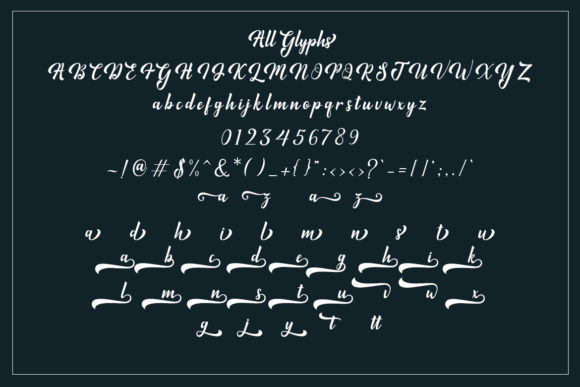 All Glyphs
ABCDEFGHIJKLMNOPQRSTUVWXYZ
abcdefghijklmnopqrstuvwxyz
0123456789
~!@#$%^&*()_+{}":<><>?`-=[]';,./`
a z a z
a d h i l m n s t u
a b c d e g h i k
l m n s t u v w x
g j y t tt